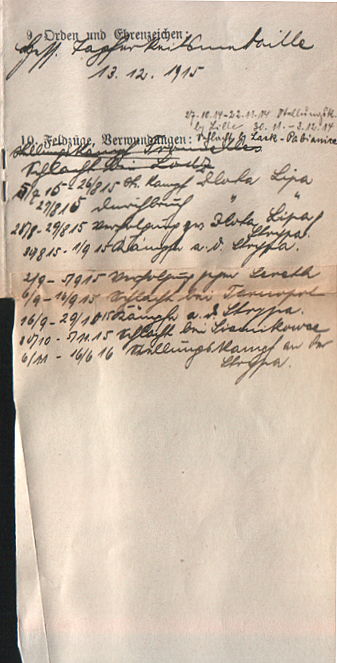 9. Orden und Ehrenzeichen:
Hess. Tapferkeitsmedaille
13. 12. 1915
27.10.14-22.11.14 Stellungsk.
by Lille 30.11.-3.12.14
10. Feldzüge, Verwundungen: Schlacht by Lask-Pabianice
Stellungskampf
Schlacht bei Lodz
26/8 15 St. Kampf Zlota Lipa
27/8 15 Durchbruch " "
28/8 - 29/8 15 Verfolgung zw. Zlota Lipa
Strypa.
30/8 15 - 1/9 15 Kämpfe a. d. Strypa.
2/9 - 5/9 15 Verfolgung gegen Sereth
6/9 - 16/9 15 Schlacht bei Tarnopol
16/9 - 29/10 15 Kämpfe a. d. Strypa.
30/10 - 5/11.15 Schlacht bei Siemikowce
6/11 - 16/6 16 Stellungskampf an der
Strypa.